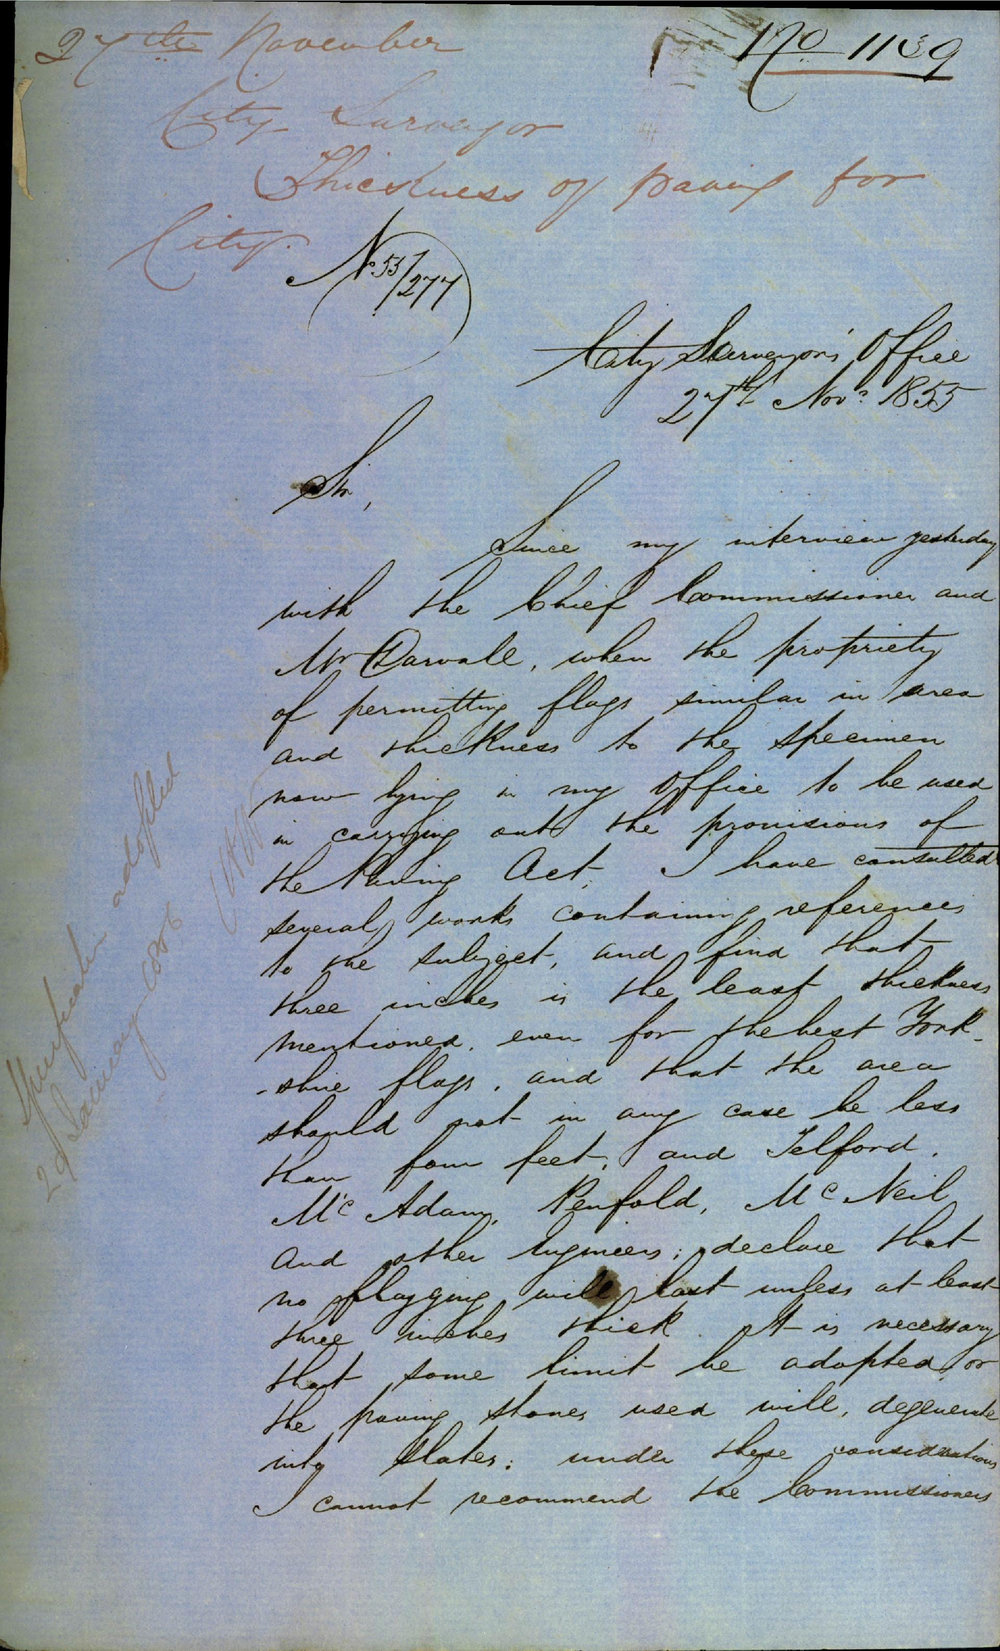 No 1139
27th November
City Surveyor
Thickness of paving for
City.
No 55/277
City Surveyors' Office
27th Novr 1855
Sir,
Since my interview yesterday
with the Chief Commissioner and
Mr Darvall, when the propriety
of permitting flags similar in area
and thickness to the specimen
now lying in my Office to be used
in carrying out the provisions of
the Paving Act, I have consulted
several works containing references
to the subject, and find that
three inches is the least thickness
mentioned, even for the best York-
-shire flags, and that the area
should not in any case be less
than four feet, and Telford,
Mc Adam, Penfold, Mc Neil
and other Engineers, declare that
no flagging will last unless at least
three inches thick. It is necessary
that some limit be adopted, or
the paving stones used will, degenerate
into slates: under these considerations
I cannot recommend the Commissioners
adopted
2d January 1856